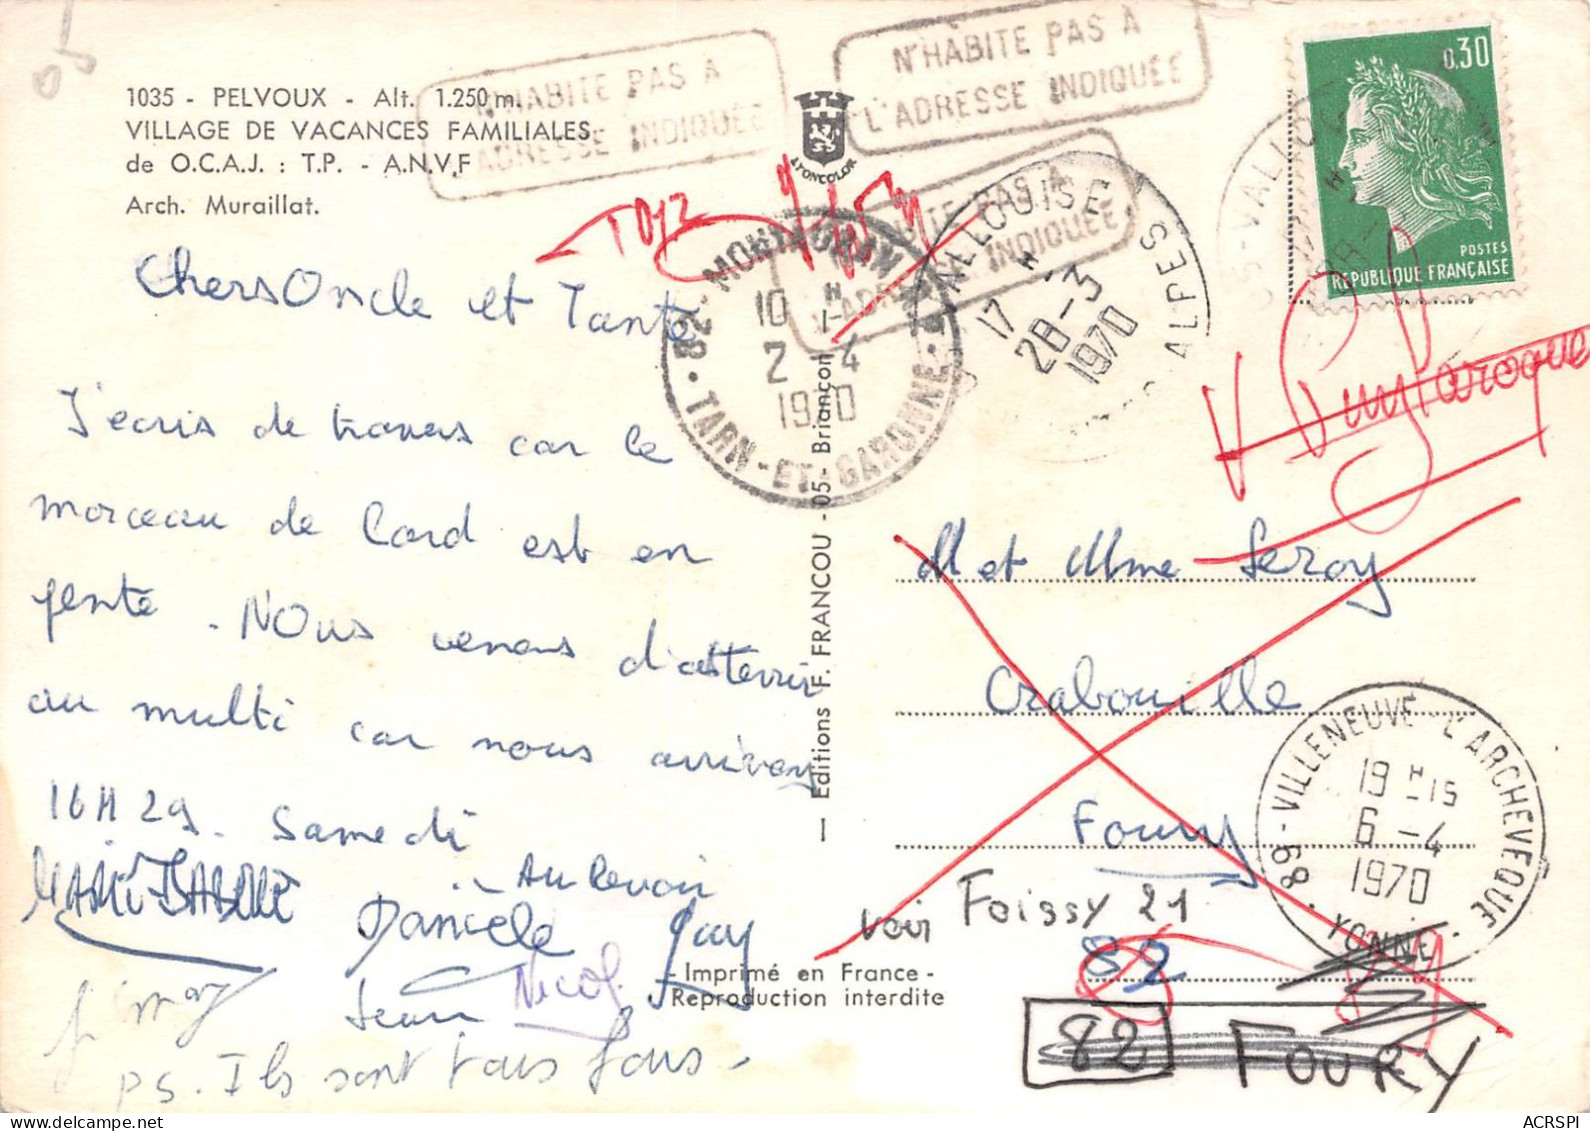 05
1035 - PELVOUX - Alt. 1.250 m.
VILLAGE DE VACANCES FAMILIALES
de O.C.A.J. : T.P. - A.N.V.F
Arch. Muraillat.
N'HABITE PAS A
L'ADRESSE INDIQUÉE
N'HABITE PAS A
L'ADRESSE INDIQUÉE
PAS A
INDIQUÉE
LYONCOLOR
0,30
POSTES
REPUBLIQUE FRANÇAISE
VALLOUISE
17 H
28-3
1970
ALPES
82 - MONTAUBAN
10 H
2 -4
1970
TARN-ET-GARONNE
Chers Oncle et Tante
J'ecris de travers car le
morceau de Card est en
pente. NOus venons d'atterrir
au multi car nous arrivons
16 H 29. Samedi
Au revoir
MARIE ISABELLE
Danièle Guy
Jean Nicol.
ps. Ils sont tous fous.
— Editions F. FRANCOU - 05 - Briançon
- Imprimé en France -
Reproduction interdite
V Puylaroque
M et Mme Leroy
Crabouille
Foury
voir Foissy 21
82
89
82 FOURY
89 - VILLENEUVE - L'ARCHEVEQUE
19 H 15
6 -4
1970
YONNE
ACRSPI